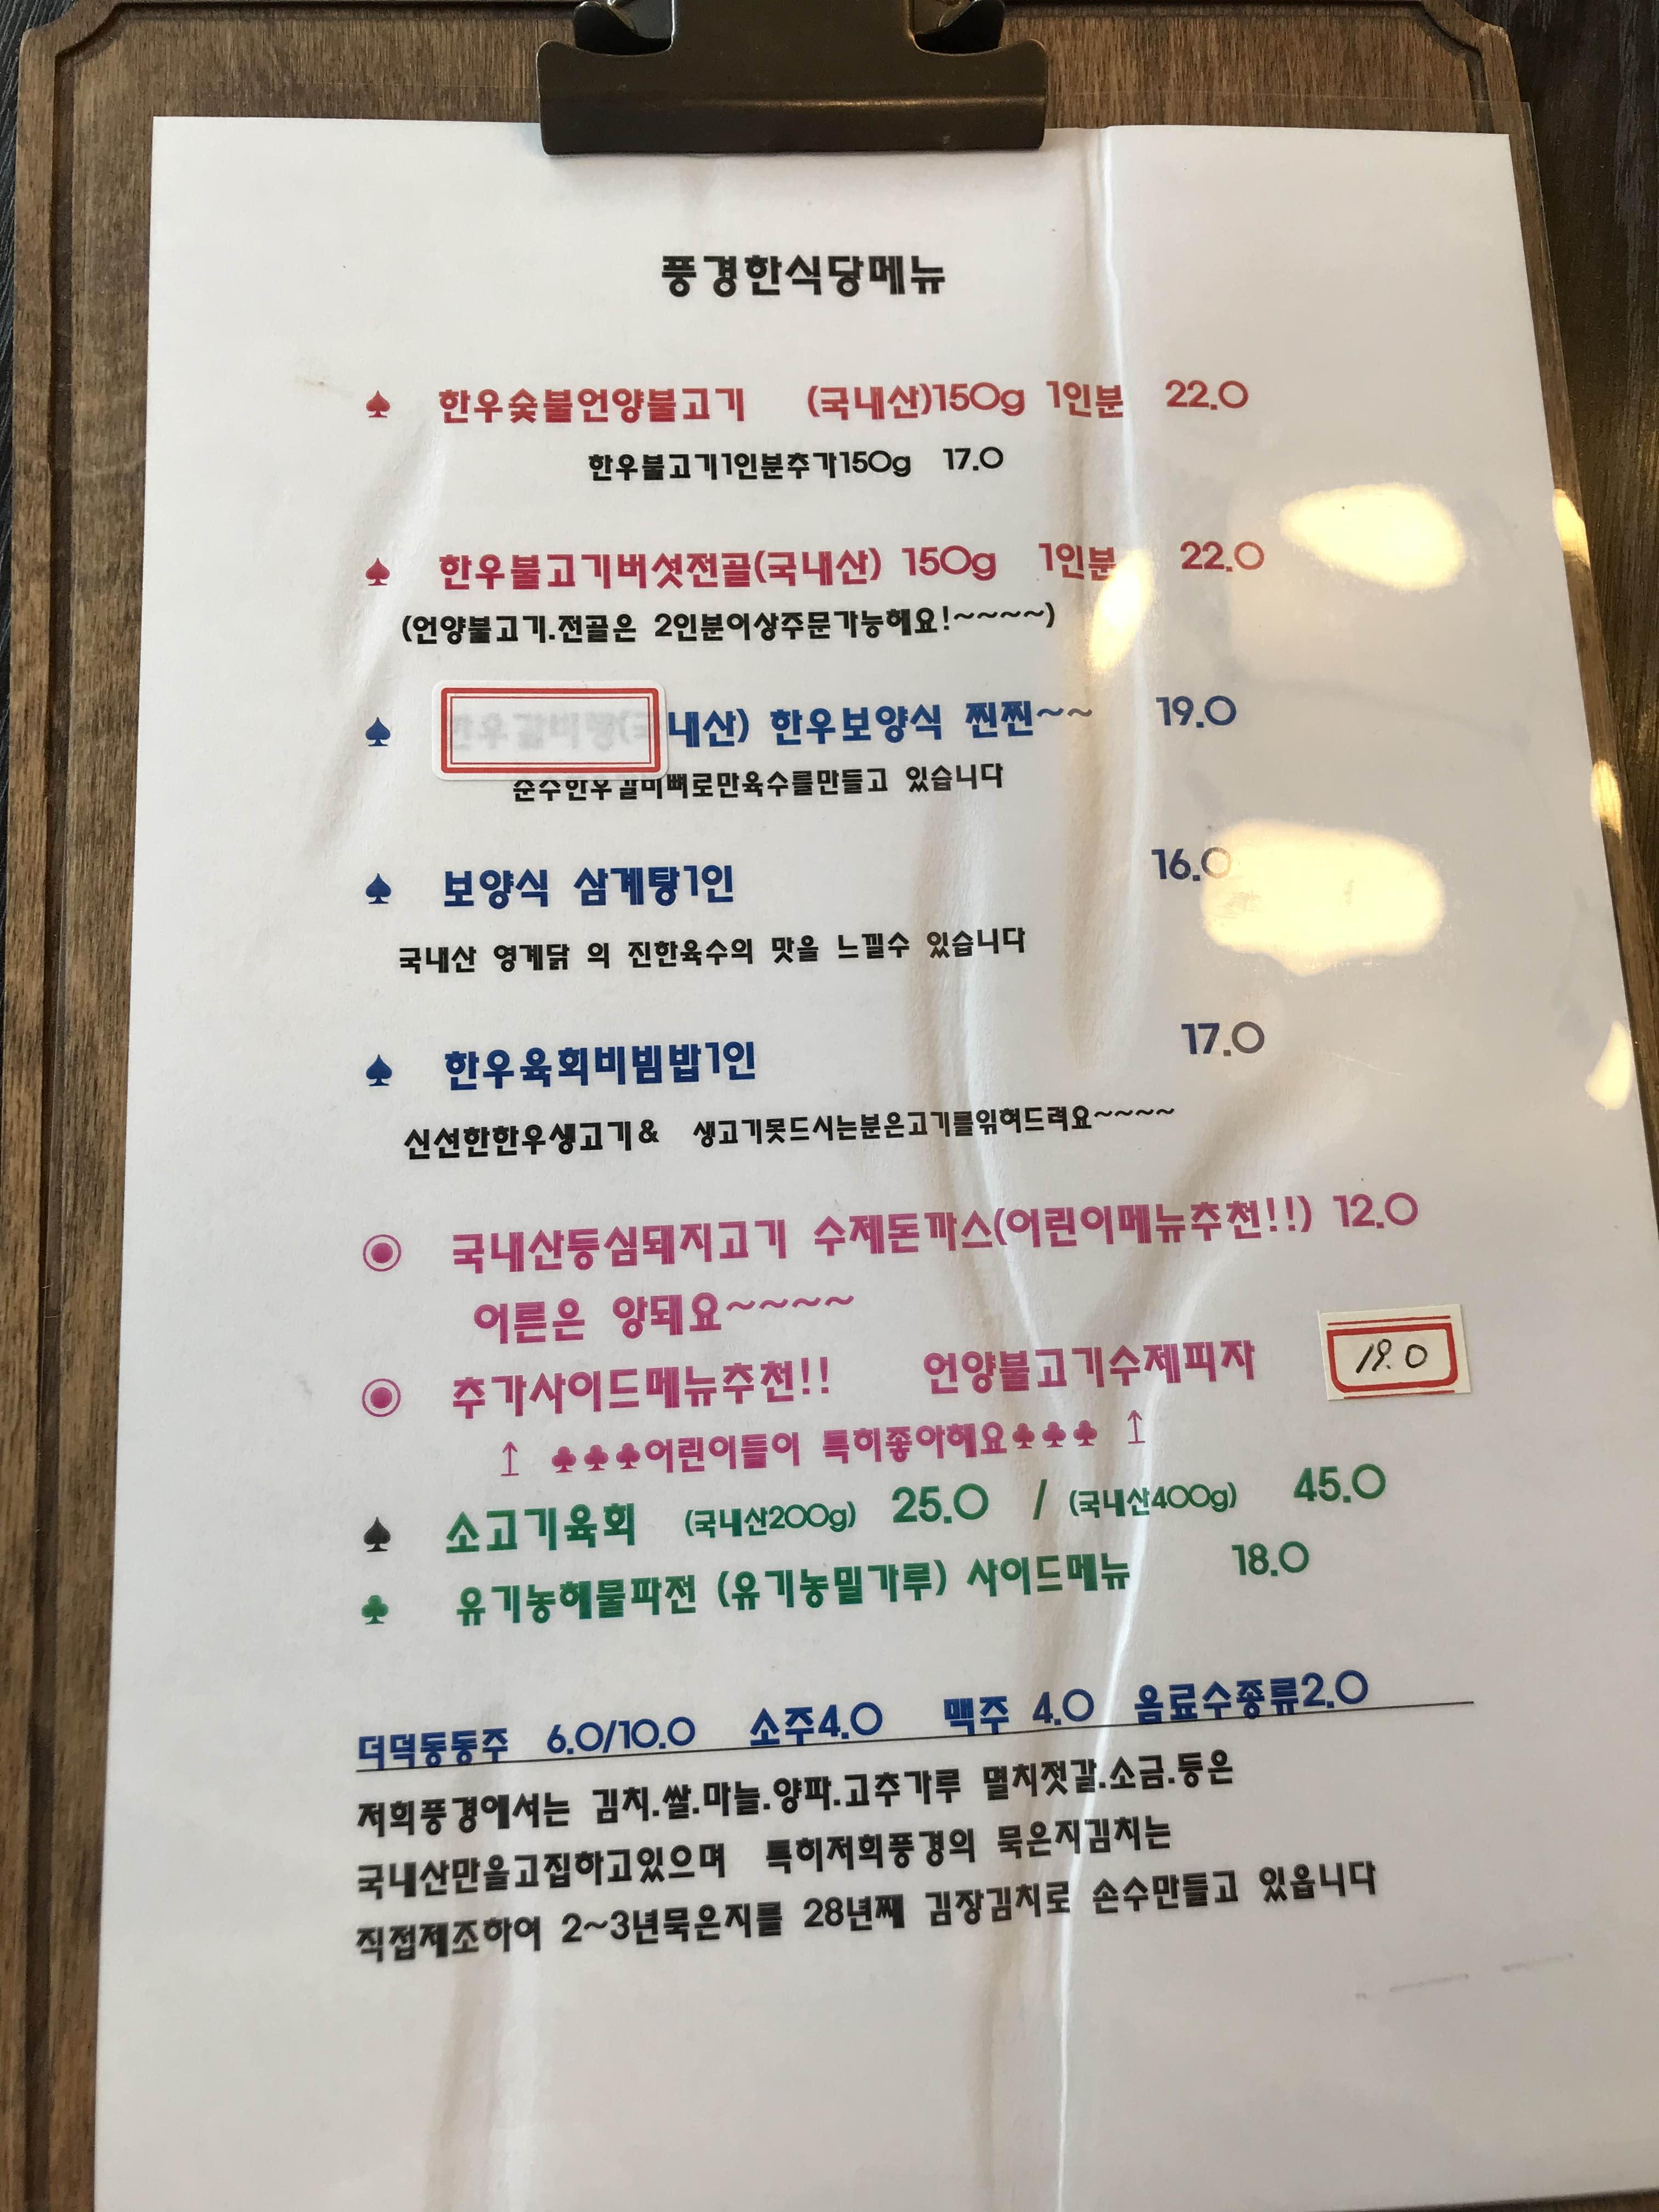 풍경한식당메뉴
♠ 한우숯불언양불고기 (국내산)150g 1인분 22.0
한우불고기1인분추가150g 17.0
♠ 한우불고기버섯전골(국내산) 150g 1인분 22.0
(언양불고기.전골은 2인분이상주문가능해요!~~~~)
♠ 한우갈비탕(국내산) 한우보양식 찐찐~~ 19.0
순수한우갈비뼈로만육수를만들고 있습니다
♠ 보양식 삼계탕1인 16.0
국내산 영계닭 의 진한육수의 맛을 느낄수 있습니다
♠ 한우육회비빔밥1인 17.0
신선한한우생고기& 생고기못드시는분은고기를읶혀드려요~~~~
◉ 국내산등심돼지고기 수제돈까스(어린이메뉴추천!!) 12.0
어른은 앙돼요~~~~
◉ 추가사이드메뉴추천!! 언양불고기수제피자 19.0
↥ ♣♣♣어린이들이 특히좋아해요♣♣♣ ↥
♠ 소고기육회 (국내산200g) 25.0 / (국내산400g) 45.0
♣ 유기농해물파전 (유기농밀가루) 사이드메뉴 18.0
더덕동동주 6.0/10.0 소주4.0 맥주 4.0 음료수종류2.0
저희풍경에서는 김치.쌀.마늘.양파.고추가루 멸치젓갈.소금.등은
국내산만을고집하고있으며 특히저희풍경의 묵은지김치는
직접제조하여 2~3년묵은지를 28년째 김장김치로 손수만들고 있읍니다